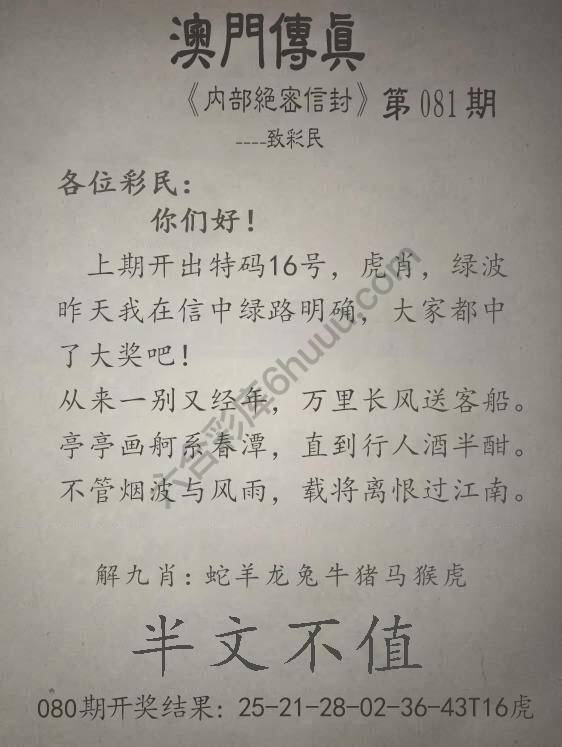 澳門傳眞
《内部絕密信封》第081期
----致彩民
各位彩民:
你们好!
上期开出特码16号,虎肖,绿波
昨天我在信中绿路明确,大家都中
了大奖吧!
从来一别又经年,万里长风送客船。
亭亭画舸系春潭,直到行人酒半酣。
不管烟波与风雨,载将离恨过江南。
解九肖:蛇羊龙兔牛猪马猴虎
半文不值
080期开奖结果:25-21-28-02-36-43T16虎
六合彩库6huuu.com